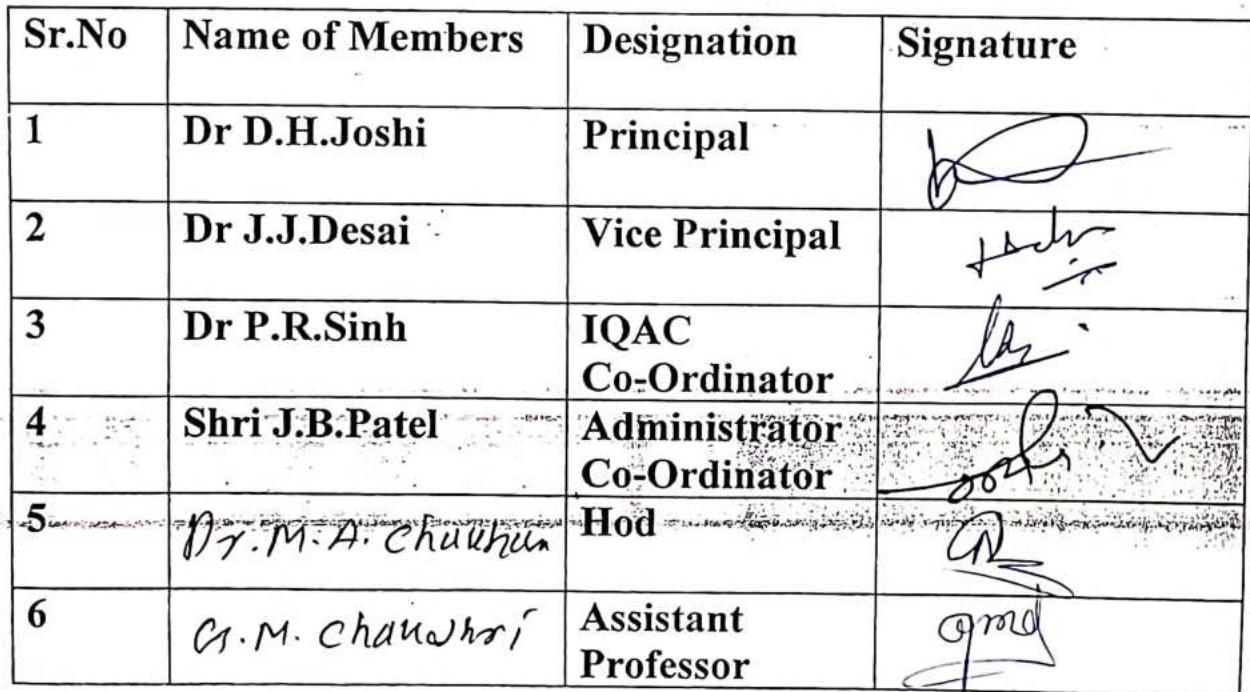 Sr.No Name of Members Designation Signature
1 Dr D.H.Joshi Principal
2 Dr J.J.Desai Vice Principal
3 Dr P.R.Sinh IQAC
Co-Ordinator
4 Shri J.B.Patel Administrator
Co-Ordinator
5 Dr. M. A. Chauhan Hod
6 G. M. Chaudhri Assistant
Professor